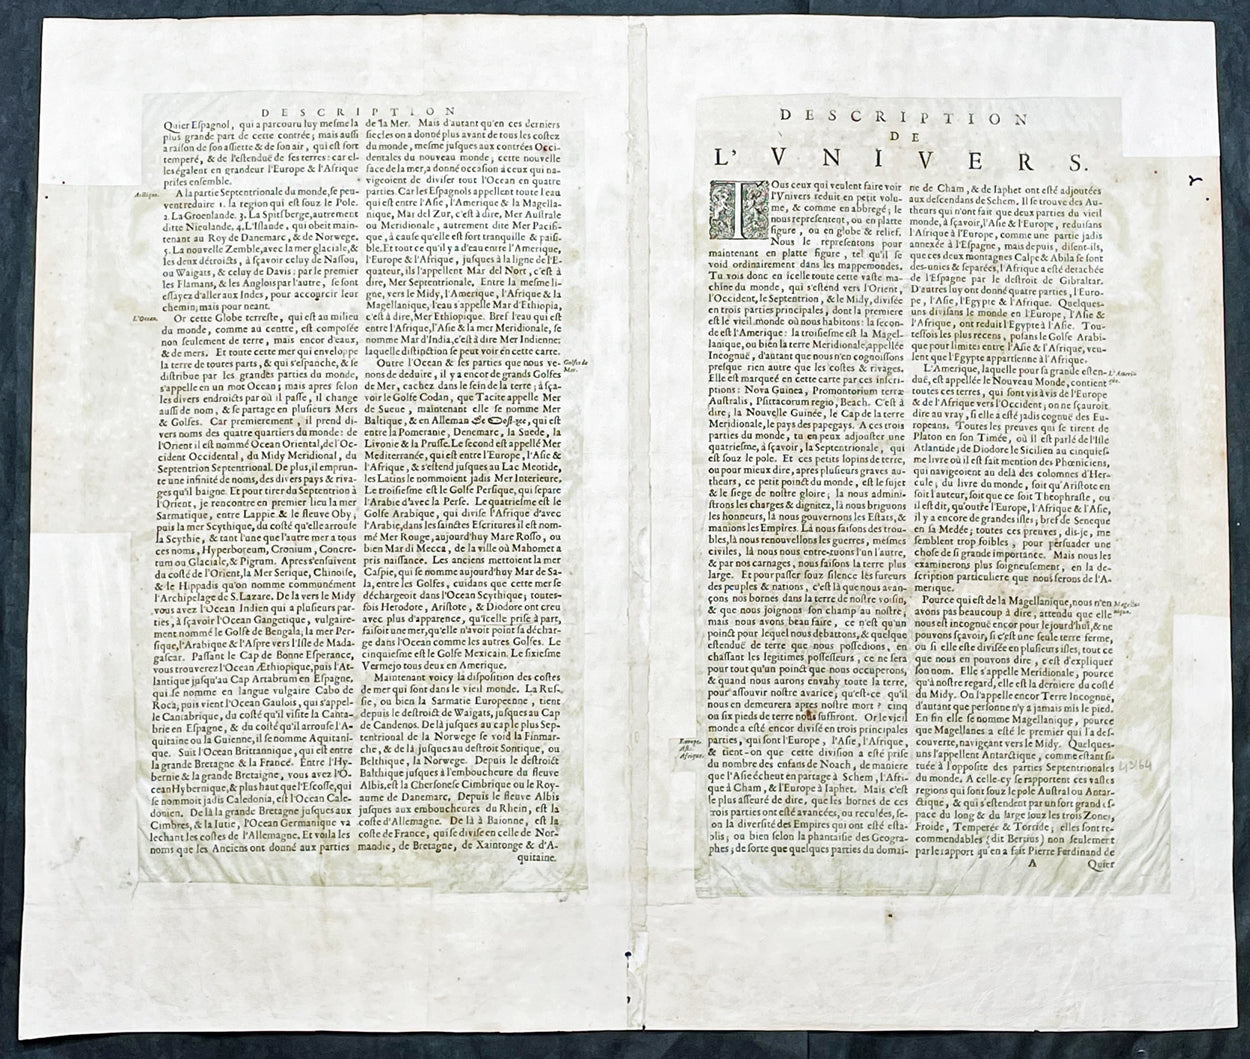 DESCRIPTION
Quier Espagnol, qui a parcouru luy mesme la
plus grande part de cette contrée; mais aussi
a raison de son assiette & de son air, qui est fort
temperé, & de l'estenduë de ses terres: car el-
les égalent en grandeur l'Europe & l'Afrique
prises ensemble.
Articque.
A la partie Septentrionale du monde, se peu-
vent reduire 1. la region qui est souz le Pole.
2. La Groenlande. 3. La Spitsberge, autrement
ditte Nieulande. 4. L'Islande, qui obeit main-
tenant au Roy de Danemarc, & de Norwege.
5. La nouvelle Zemble, avec la mer glaciale, &
les deux détroicts, à sçavoir celuy de Nassou,
ou Waigats, & celuy de Davis: par le premier
les Flamans, & les Anglois par l'autre, se sont
essayez d'aller aux Indes, pour accourcir leur
chemin; mais pour neant.
L'Ocean.
Or cette Globe terrestre, qui est au milieu
du monde, comme au centre, est composée
non seulement de terre, mais encor d'eaux,
& de mers. Et toute cette mer qui enveloppe
la terre de toutes parts, & qui s'espanche, & se
distribue par les grandes parties du monde,
s'appelle en un mot Ocean; mais apres selon
les divers endroicts par où il passe, il change
aussi de nom, & se partage en plusieurs Mers
& Golfes. Car premierement, il prend di-
vers noms des quatre quartiers du monde: de
l'Orient il est nommé Ocean Oriental, de l'Oc-
cident Occidental, du Midy Meridional, du
Septentrion Septentrional. De plus, il emprun-
te une infinité de noms, des divers pays & riva-
ges qu'il baigne. Et pour tirer du Septentrion à
l'Orient, je rencontre en premier lieu la mer
Sarmatique, entre Lappie & le fleuve Oby;
puis la mer Scythique, du costé qu'elle arrouse
la Scythie, & tant l'une que l'autre mer a tous
ces noms, Hyperboreum, Cronium, Concre-
tum ou Glaciale, & Pigrum. Apres s'ensuivent
du costé de l'Orient, la Mer Serique, Chinoise,
& le Hippadis qu'on nomme communément
l'Archipelage de S. Lazare. De la vers le Midy
vous avez l'Ocean Indien qui a plusieurs par-
ties, à sçavoir l'Ocean Gangetique, vulgaire-
ment nommé le Golfe de Bengala; la mer Per-
sique, l'Arabique & l'Aspre vers l'Isle de Mada-
gascar. Passant le Cap de Bonne Esperance,
vous trouverez l'Ocean Æthiopique, puis l'At-
lantique jusqu'au Cap Artabrum en Espagne,
qui se nomme en langue vulgaire Cabo de
Roca; puis vient l'Ocean Gaulois, qui s'appel-
le Cantabrique, du costé qu'il visite la Canta-
brie en Espagne, & du costé qu'il arrouse l'A-
quitaine ou la Guienne, il se nomme Aquitani-
que. Suit l'Ocean Brittannique, qui est entre
la grande Bretagne & la France. Entre l'Hy-
bernie & la grande Bretaigne, vous avez l'O-
cean Hybernique, & plus haut que l'Escosse, qui
se nommoit jadis Caledonia, est l'Ocean Cale-
donien. De là la grande Bretagne jusques aux
Cimbres, & la Iutie, l'Ocean Germanique va
lechant les costes de l'Allemagne. Et voila les
noms que les Anciens ont donné aux parties
de la Mer. Mais d'autant qu'en ces derniers
siecles on a donné plus avant de tous les costez
du monde, mesme jusques aux contrées Occi-
dentales du nouveau monde; cette nouvelle
face de la mer, a donné occasion à ceux qui na-
vigeoient de diviser tout l'Ocean en quatre
parties. Car les Espagnols appellent toute l'eau
qui est entre l'Asie, l'Amerique & la Magella-
nique, Mar del Zur, c'est à dire, Mer Australe
ou Meridionale, autrement dite Mer Pacifi-
que, à cause qu'elle est fort tranquille & paisi-
ble. Et tout ce qu'il y a d'eau entre l'Amerique,
l'Europe & l'Afrique, jusques à la ligne de l'E-
quateur, ils l'appellent Mar del Nort, c'est à
dire, Mer Septentrionale. Entre la mesme li-
gne, vers le Midy, l'Amerique, l'Afrique & la
Magellanique, l'eau s'appelle Mar d'Ethiopia,
c'est à dire, Mer Ethiopique. Bref l'eau qui est
entre l'Afrique, l'Asie & la mer Meridionale, se
nomme Mar d'India, c'est à dire Mer Indienne:
laquelle distinction se peut voir en cette carte.
Golfes de
Mer.
Outre l'Ocean & ses parties que nous ve-
nons de deduire, il y a encor de grands Golfes
de Mer, cachez dans le sein de la terre; à sça-
voir le Golfe Codan, que Tacite appelle Mer
de Sueue, maintenant elle se nomme Mer
Baltique, & en Alleman De Oost-zee, qui est
entre la Pomeranie, Denemarc, la Suede, la
Livonie & la Prusse. Le second est appellé Mer
Mediterranée, qui est entre l'Europe, l'Asie &
l'Afrique, & s'estend jusques au Lac Meotide,
les Latins le nommoient jadis Mer Interieure.
Le troisiesme est le Golfe Persique, qui separe
l'Arabie d'avec la Perse. Le quatriesme est le
Golfe Arabique, qui divise l'Afrique d'avec
l'Arabie, dans les sainctes Escritures il est nom-
mé Mer Rouge, aujourd'huy Mare Rosso, ou
bien Mar di Mecca, de la ville où Mahomet a
pris naissance. Les anciens mettoient la mer
Caspie, qui se nomme aujourd'huy Mar de Sa-
la, entre les Golfes, cuidans que cette mer se
déchargeoit dans l'Ocean Scythique; toutes-
fois Herodote, Aristote, & Diodore ont creu
avec plus d'apparence, qu'icelle prise à part,
faisoit une mer, qu'elle n'avoit point sa déchar-
ge dans l'Ocean comme les autres Golfes. Le
cinquiesme est le Golfe Mexicain. Le sixiesme
Vermejo tous deux en Amerique.
Maintenant voicy la disposition des costes
de mer qui sont dans le vieil monde. La Rus-
sie, ou bien la Sarmatie Europeenne, tient
depuis le destroict de Waigats, jusques au Cap
de Candenos. De là jusques au cap le plus Sep-
tentrional de la Norwege se void la Finmar-
che, & de là jusques au destroit Sontique, ou
Belthique, la Norwege. Depuis le destroict
Balthique jusques à l'emboucheure du fleuve
Albis, est la Chersonese Cimbrique ou le Roy-
aume de Danemarc. Depuis le fleuve Albis
jusques aux emboucheures du Rhein, est la
coste d'Allemagne. De là à Baionne, est la
coste de France, qui se divise en celle de Nor-
mandie, de Bretagne, de Xaintonge & d'A-
quitaine.
DESCRIPTION
DE
L'VNIVERS.
TOus ceux qui veulent faire voir
l'Vnivers reduit en petit volu-
me, & comme en abbregé; le
nous representent, ou en platte
figure, ou en globe & relief.
Nous le representons pour
maintenant en platte figure, tel qu'il se
void ordinairement dans les mappemondes.
Tu vois donc en icelle toute cette vaste ma-
chine du monde, qui s'estend vers l'Orient,
l'Occident, le Septentrion, & le Midy, divisée
en trois parties principales, dont la premiere
est le vieil monde où nous habitons: la secon-
de est l'Amerique: la troisiesme est la Magel-
lanique, ou bien la terre Meridionale, appellée
Incognuë, d'autant que nous n'en cognoissons
presque rien autre que les costes & rivages.
Elle est marquée en cette carte par ces inscri-
ptions: Nova Guinea, Promontorium terræ
Australis, Psittacorum regio, Beach. C'est à
dire, la Nouvelle Guinée, le Cap de la terre
Meridionale, le pays des papegays. A ces trois
parties du monde, tu en peux adjouster une
quatriesme, à sçavoir, la Septentrionale, qui
est souz le pole. Et ces petits lopins de terre,
ou pour mieux dire, apres plusieurs graves au-
theurs, ce petit poinct du monde, est le sujet
& le siege de nostre gloire; là nous admini-
strons les charges & dignitez, là nous briguons
les honneurs, là nous gouvernons les Estats, &
manions les Empires. Là nous faisons des trou-
bles, là nous renouvellons les guerres, mesmes
civiles, là nous nous entre-tuons l'un l'autre,
& par nos carnages, nous faisons la terre plus
large. Et pour passer souz silence les fureurs
des peuples & nations, c'est là que nous avan-
çons nos bornes dans la terre de nostre voisin,
& que nous joignons son champ au nostre,
mais nous avons beau faire, ce n'est qu'un
poinct pour lequel nous debattons, & quelque
estenduë de terre que nous possedions, en
chassant les legitimes possesseurs, ce ne sera
pour tout qu'un poinct que nous occuperons,
& quand nous aurons envahy toute la terre,
pour assouvir nostre avarice; qu'est-ce qu'il
nous en demeurera apres nostre mort? cinq
ou six pieds de terre nous suffiront. Or le vieil
monde a esté encor divisé en trois principales
Europe.
Asie.
Afrique.
parties, qui sont l'Europe, l'Asie, l'Afrique,
& tient-on que cette division a esté prise
du nombre des enfans de Noach, de maniere
que l'Asie écheut en partage à Schem, l'Afri-
que à Cham, & l'Europe à Japhet. Mais c'est
le plus asseuré de dire, que les bornes de ces
trois parties ont esté avancées, ou reculées, se-
on la diversité des Empires qui ont esté esta-
blis; ou bien selon la phantaisie des Geogra-
phes; de sorte que quelques parties du domai-
ne de Cham, & de Iaphet ont esté adjoutées
aux descendans de Schem. Il se trouve des Au-
theurs qui n'ont fait que deux parties du vieil
monde, à sçavoir, l'Asie & l'Europe, reduisans
l'Afrique à l'Europe, comme une partie jadis
annexée à l'Espagne, mais depuis, disent-ils,
que ces deux montagnes Calpe & Abila se sont
des-unies & separées, l'Afrique a esté detachée
de l'Espagne par le destroit de Gibraltar.
D'autres luy ont donné quatre parties, l'Euro-
pe, l'Asie, l'Egypte & l'Afrique. Quelques-
uns divisans le monde en l'Europe, l'Asie &
l'Afrique, ont reduit l'Egypte à l'Asie. Tou-
tesfois les plus recens, posans le Golfe Arabi-
que pour limites entre l'Asie & l'Afrique, veu-
lent que l'Egypte appartienne à l'Afrique.
L'Ameri-
que.
L'Amerique, laquelle pour sa grande esten-
duë, est appellée le Nouveau Monde, contient
toutes ces terres, qui sont vis à vis de l'Europe
& de l'Afrique vers l'Occident; on ne sçauroit
dire au vray, si elle a esté jadis cognuë des Eu-
ropeans. Toutes les preuves qui se tirent de
Platon en son Timée, où il est parlé de l'Isle
Atlantide; de Diodore le Sicilien au cinquies-
me livre où il est fait mention des Phœniciens,
qui navigeoient au delà des colomnes d'Her-
cule; du livre du monde, soit qu'Aristote en
soit l'auteur, soit que ce soit Theophraste, ou
il est dit, qu'outre l'Europe, l'Afrique & l'Asie,
il y a encore de grandes isles; bref de Seneque
en sa Medée; toutes ces preuves, dis-je, me
semblent trop foibles, pour persuader une
chose de si grande importance. Mais nous les
examinerons plus soigneusement, en la de-
scription particuliere que nous ferons de l'A-
merique.
Magella-
nique.
Pource qui est de la Magellanique, nous n'en
avons pas beaucoup à dire, attendu que elle
nous est incognuë encor pour le jourd'hui, & ne
pouvons sçavoir, si c'est une seule terre ferme,
ou si elle est divisée en plusieurs isles, tout ce
que nous en pouvons dire, c'est d'expliquer
son nom. Elle s'appelle Meridionale, pource
qu'à nostre regard, elle est la derniere du costé
du Midy. On l'appelle encor Terre Incognuë,
d'autant que personne n'y a jamais mis le pied.
En fin elle se nomme Magellanique, pource
que Magellanes a esté le premier qui l'a des-
couverte, navigeant vers le Midy. Quelques-
uns l'appellent Antarctique, comme estant si-
tuée à l'opposite des parties Septentrionales
du monde. A celle-cy se rapportent ces vastes
regions qui sont souz le pole Austral ou Antar-
ctique, & qui s'estendent par un fort grand es-
pace du long & du large souz les trois Zones,
Froide, Temperée & Torride; elles sont re-
commendables (dit Bertius) non seulement
par le rapport qu'en a fait Pierre Ferdinand de
A
Quier